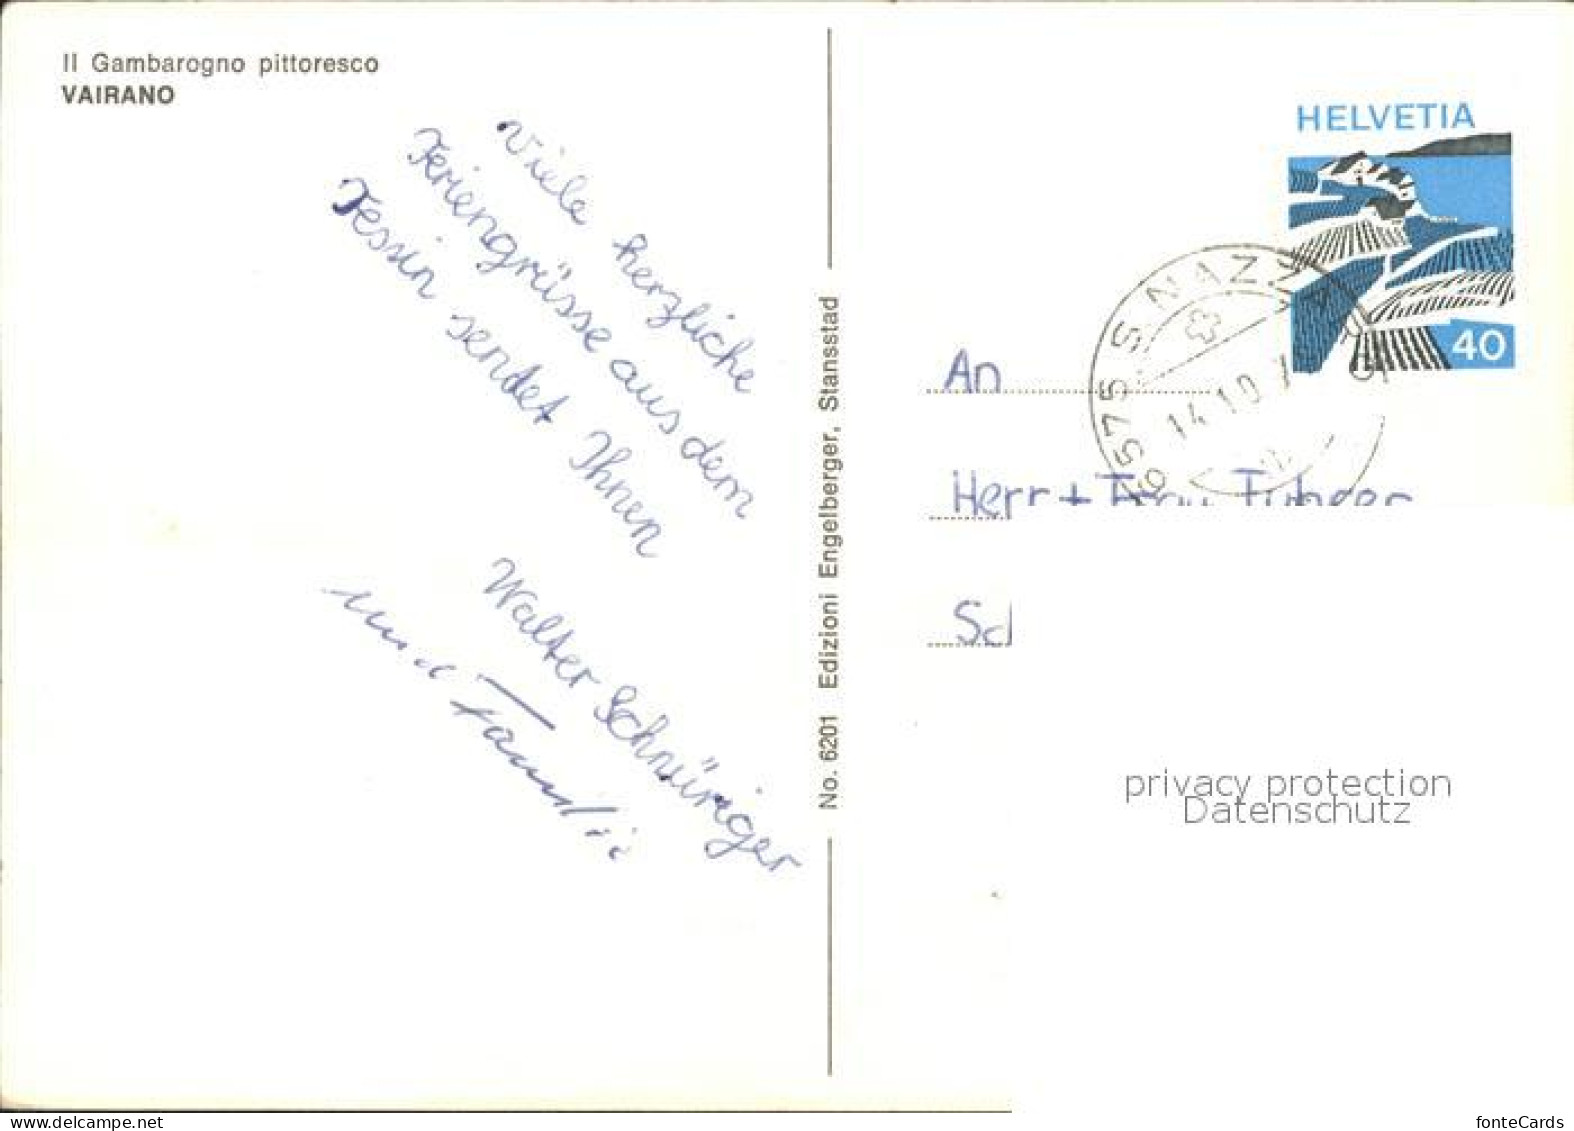 Il Gambarogno pittoresco
VAIRANO
Viele herzliche
Feriengrüsse aus dem
Tessin sendet Ihnen
Walter Schnüriger
und Familie
No. 6201 Edizioni Engelberger, Stansstad
HELVETIA
40
6575 S. NAZZ
14.10.7
An
Herr + Frau
privacy protection
Datenschutz
fonteCards